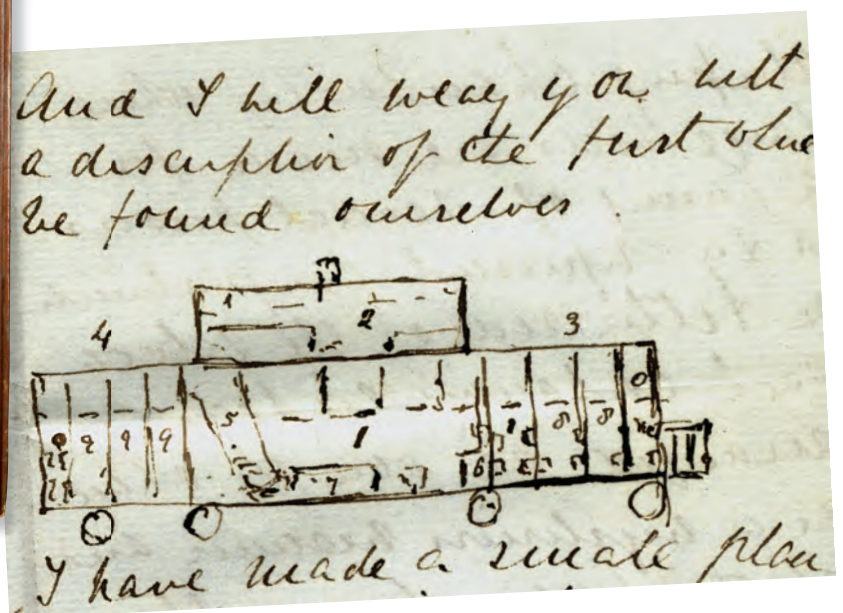 And I will weary you with
a discription of the first
we found ourselves.
1 2
4 3
9 9 9 5 1 8 8
6
7
I have made a small plan